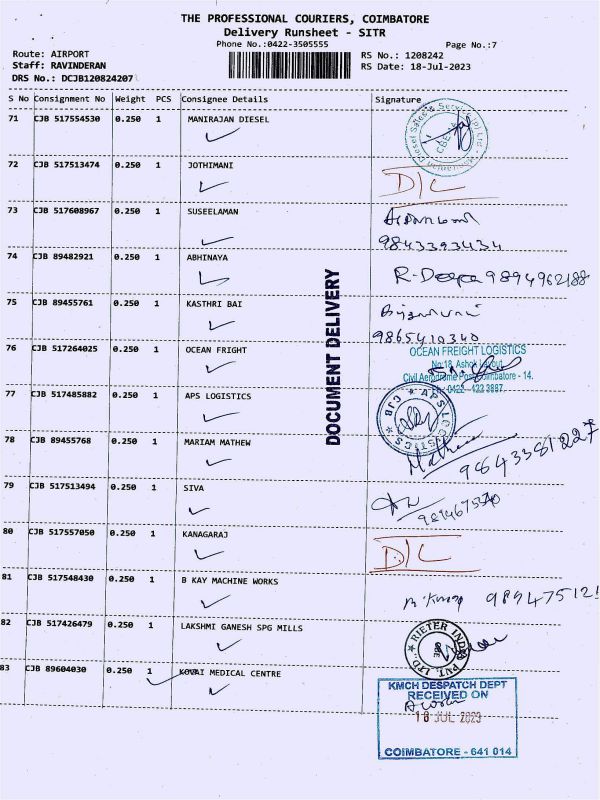 THE PROFESSIONAL COURIERS, COIMBATORE
Delivery Runsheet - SITR
Phone No.:0422-3505555
Page No.:7
Route: AIRPORT
RS No.: 1208242
Staff: RAVINDERAN
RS Date: 18-Jul-2023
DRS No.: DCJB120824207
S No Consignment No Weight PCS Consignee Details Signature
71 CJB 517554530 0.250 1 MANIRAJAN DIESEL
72 CJB 517513474 0.250 1 JOTHIMANI D/L
73 CJB 517608967 0.250 1 SUSEELAMAN
9843393434
74 CJB 89482921 0.250 1 ABHINAYA R-Deepa 9894962188
75 CJB 89455761 0.250 1 KASTHRI BAI
9865410340
DOCUMENT DELIVERY
76 CJB 517264025 0.250 1 OCEAN FREIGHT OCEAN FREIGHT LOGISTICS
No:18, Ashok Layout
Civil Aerodrome Post, Coimbatore - 14.
77 CJB 517485882 0.250 1 APS LOGISTICS APS LOGISTICS CJB
78 CJB 89455768 0.250 1 MARIAM MATHEW Mathew
9843381227
79 CJB 517513494 0.250 1 SIVA
80 CJB 517557050 0.250 1 KANAGARAJ D/L
81 CJB 517548430 0.250 1 B KAY MACHINE WORKS
989475121
82 CJB 517426479 0.250 1 LAKSHMI GANESH SPG MILLS RIETER INDIA PVT. LTD.
83 CJB 89604030 0.250 1 KOVAI MEDICAL CENTRE
KMCH DESPATCH DEPT
RECEIVED ON
18 JUL 2023
COIMBATORE - 641 014